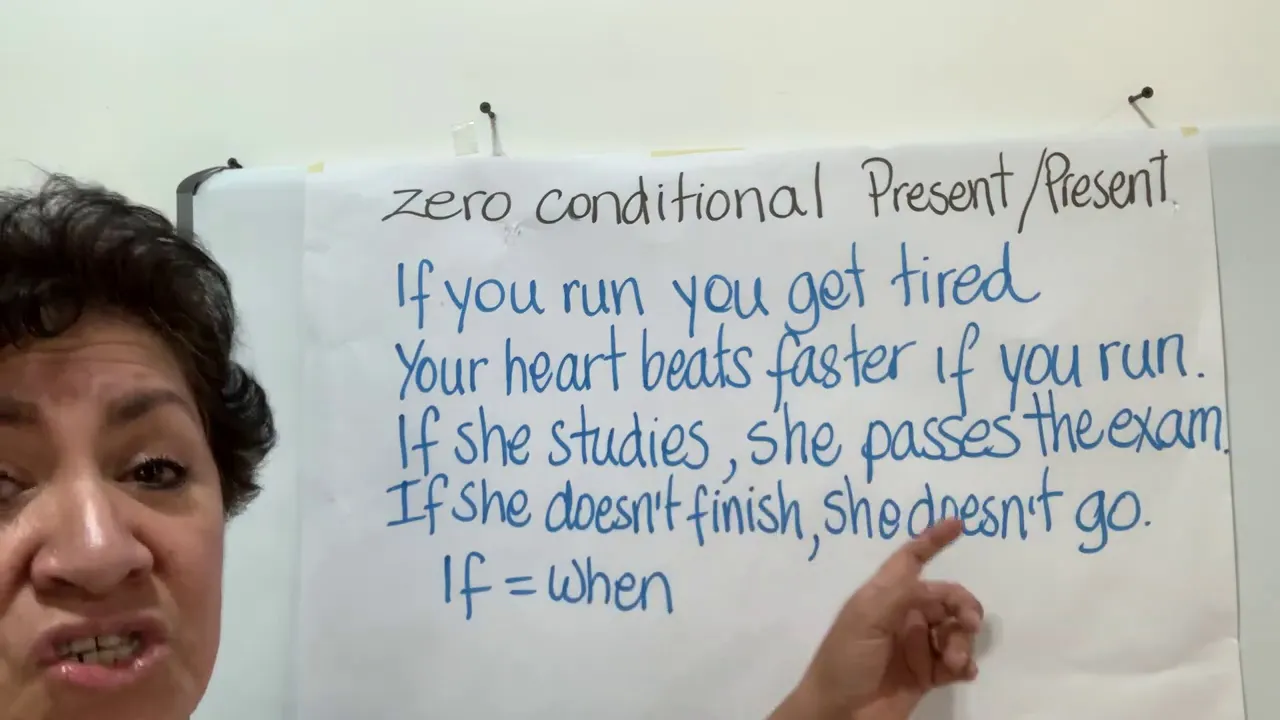 zero conditional Present/Present
If you run you get tired
Your heart beats faster if you run.
If she studies, she passes the exam.
If she doesn't finish, she doesn't go.
If = when